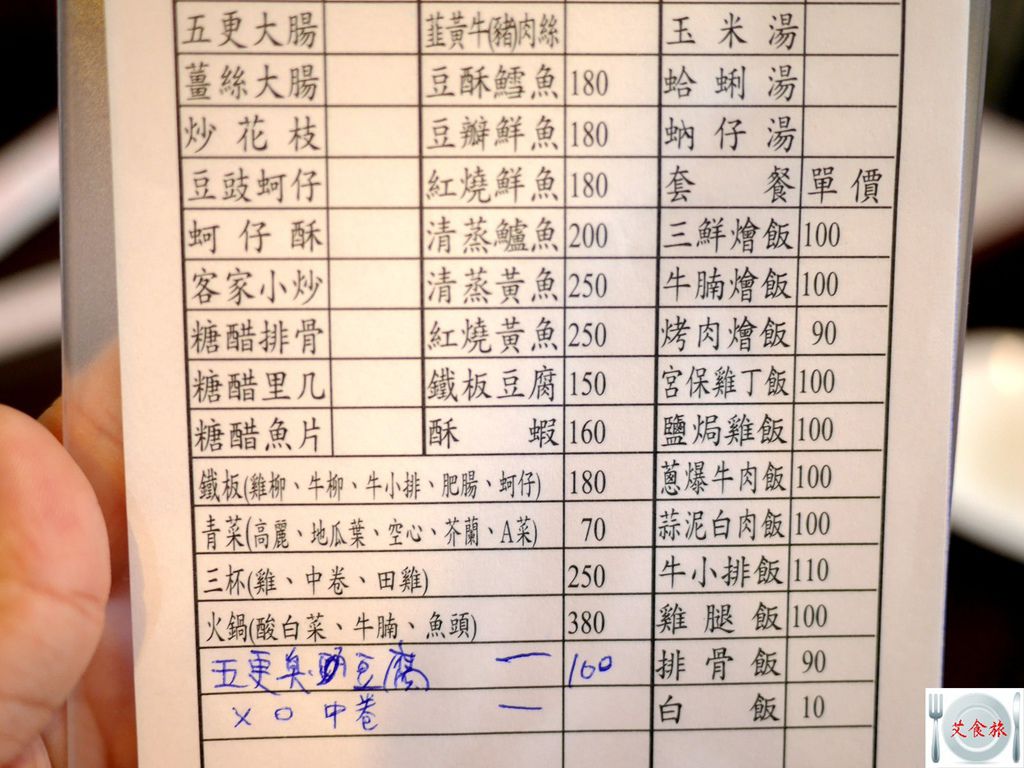 五更大腸 韮黃牛(豬)肉絲 玉米湯
薑絲大腸 豆酥鱈魚 180 蛤蜊湯
炒花枝 豆瓣鮮魚 180 蚋仔湯
豆豉蚵仔 紅燒鮮魚 180 套餐 單價
蚵仔酥 清蒸鱸魚 200 三鮮燴飯 100
客家小炒 清蒸黃魚 250 牛腩燴飯 100
糖醋排骨 紅燒黃魚 250 烤肉燴飯 90
糖醋里几 鐵板豆腐 150 宮保雞丁飯 100
糖醋魚片 酥蝦 160 鹽焗雞飯 100
鐵板(雞柳、牛柳、牛小排、肥腸、蚵仔) 180 蔥爆牛肉飯 100
青菜(高麗、地瓜葉、空心、芥蘭、A菜) 70 蒜泥白肉飯 100
三杯(雞、中卷、田雞) 250 牛小排飯 110
火鍋(酸白菜、牛腩、魚頭) 380 雞腿飯 100
五更臭豆腐 一 160 排骨飯 90
XO中卷 一 白飯 10
艾食旅